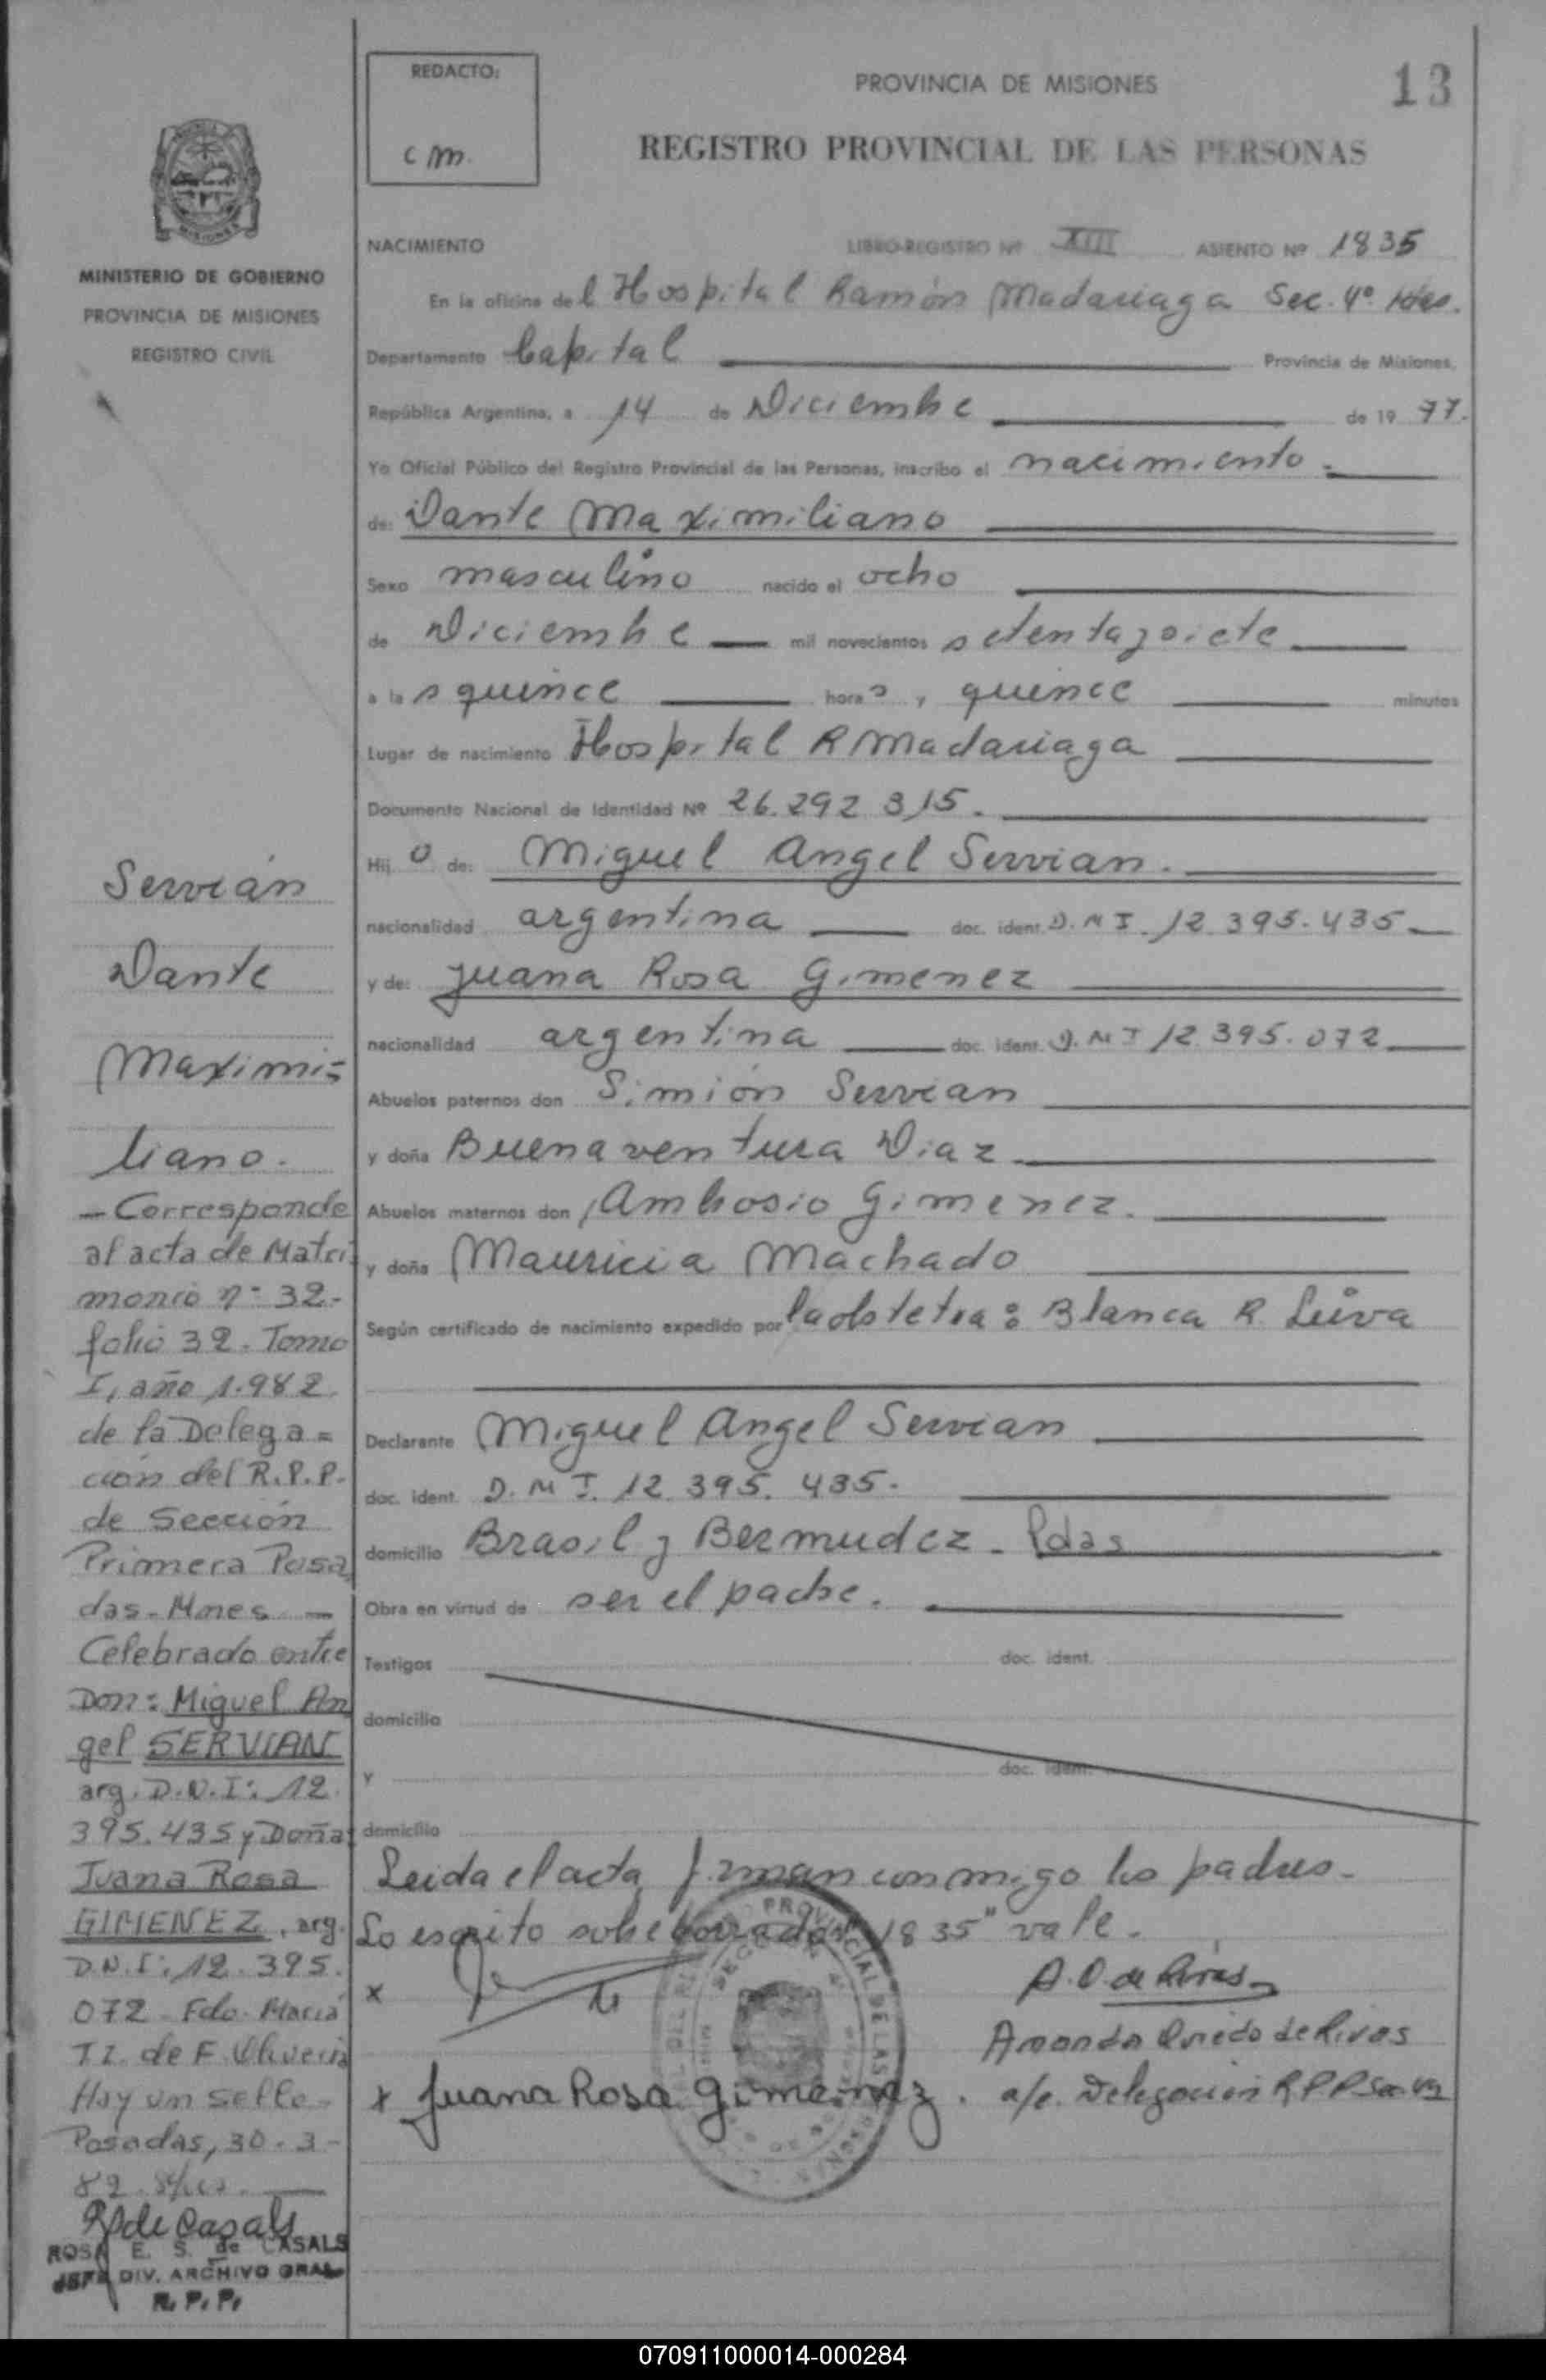 REDACTO:
c m.
PROVINCIA DE MISIONES
13
REGISTRO PROVINCIAL DE LAS PERSONAS
MINISTERIO DE GOBIERNO
PROVINCIA DE MISIONES
REGISTRO CIVIL
NACIMIENTO LIBRO-REGISTRO Nº XIII ASIENTO Nº 1835
En la oficina del Hospital Ramón Madariaga Sec. 4º
Departamento Capital Provincia de Misiones,
República Argentina, a 14 de Diciembre de 1977.
Yo Oficial Público del Registro Provincial de las Personas, inscribo el nacimiento
de: Dante Maximiliano
Sexo masculino nacido el ocho
de Diciembre mil novecientos setentaysiete
a las quince horas y quince minutos
Lugar de nacimiento Hospital R Madariaga
Documento Nacional de Identidad Nº 26.292.315.
Hijo de: Miguel Angel Servian.
nacionalidad argentina doc. ident. D. N I. 12.395.435
y de: Juana Rosa Gimenez
nacionalidad argentina doc. ident. D. N I 12.395.072
Abuelos paternos don Simión Servian
y doña Buenaventura Diaz
Abuelos maternos don Ambrosio Gimenez.
y doña Mauricia Machado
Según certificado de nacimiento expedido por la obstetra: Blanca R. Leiva
Declarante Miguel Angel Servian
doc. ident. D. N I. 12.395.435.
domicilio Brasil y Bermudez - Pdas
Obra en virtud de ser el padre.
Testigos doc. ident.
domicilio
y doc. ident.
domicilio
Leida el acta firman conmigo los padres-
Lo escrito sobre borrado "1835" vale.
x
A.O. de Rivas
Amanda Oviedo de Rivas
x Juana Rosa Gimeinez. a/c. Delegacion R.P.P.
Servián
Dante
Maximi=
liano.
- Corresponde
al acta de Matri
monio nº 32-
folio 32. Tomo
I, año 1.982.
de la Delega=
ción del R.P.P.
de Sección
Primera Posa
das-Mnes -
Celebrado entre
Don: Miguel An
gel SERVIAN
arg. D.N.I: 12.
395.435 y Doña
Juana Rosa
GIMENEZ, arg.
D.N.I: 12.395.
072- Fdo. María
T. de F. Oliveira
Hay un sello-
Posadas, 30-3-
82.
R de Casals
ROSA E. S. de CASALS
JEFE DIV. ARCHIVO GRAL
R. P. P.
070911000014-000284